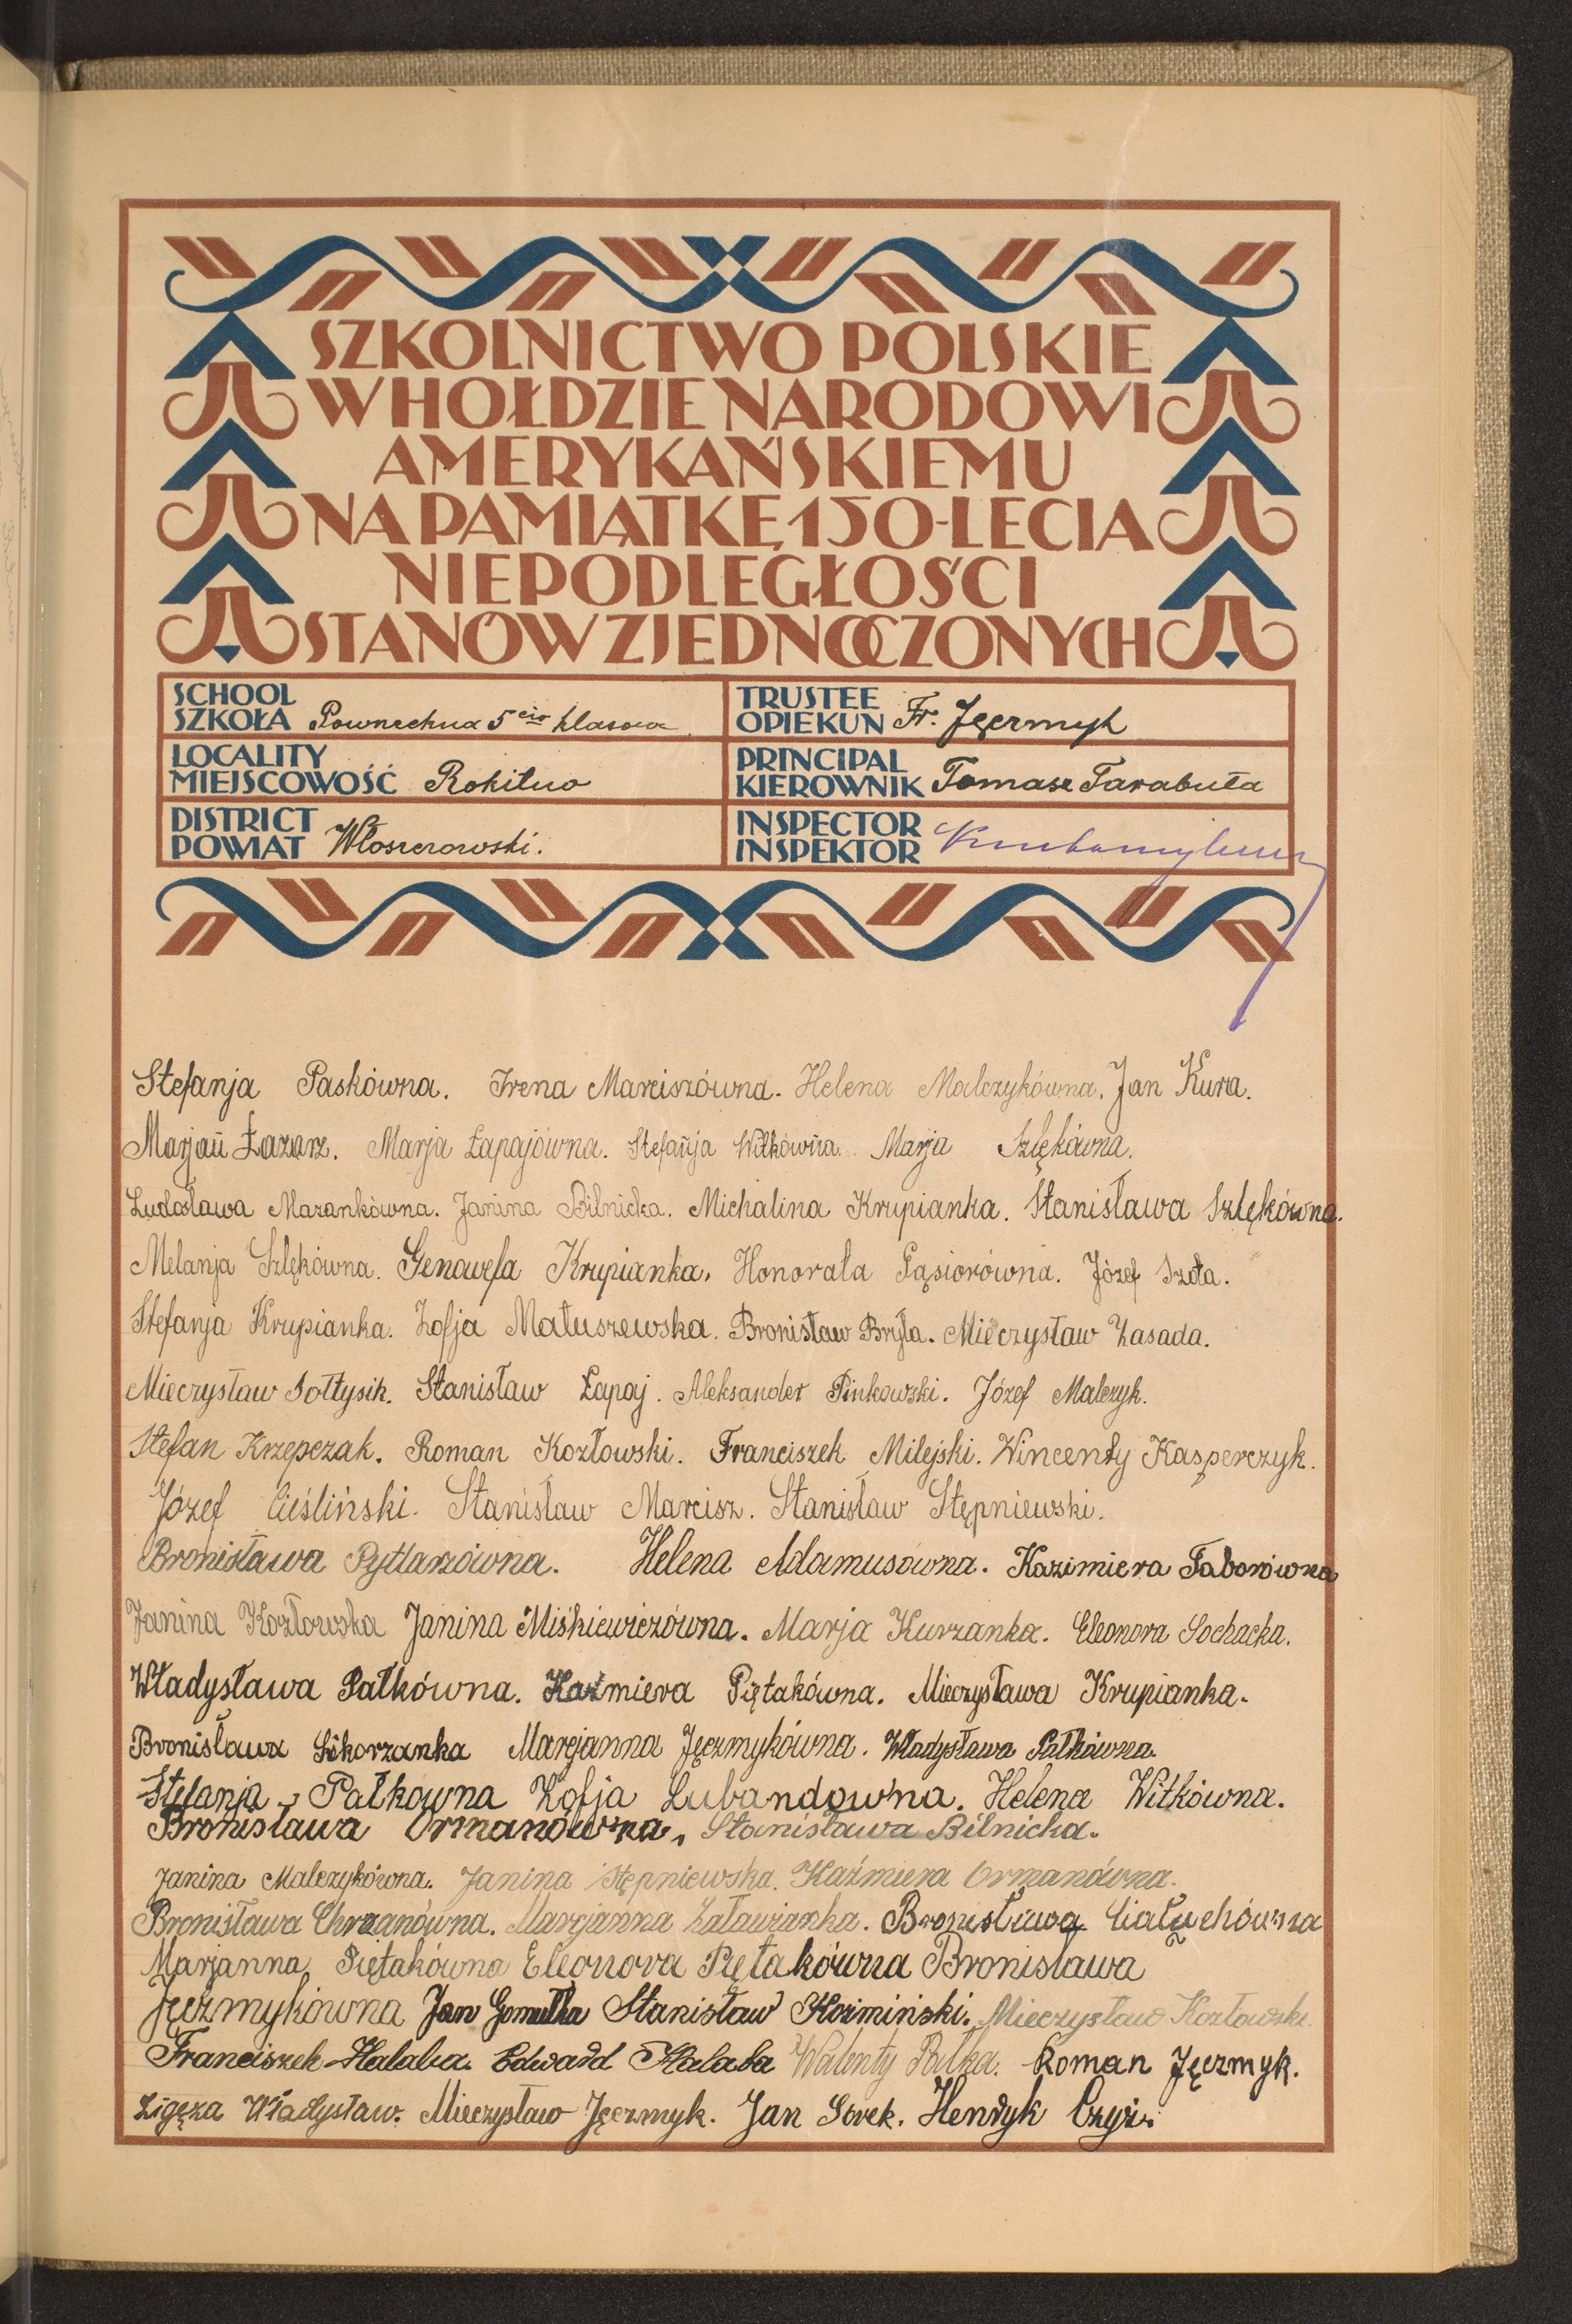 SZKOLNICTWO POLSKIE
W HOŁDZIE NARODOWI
AMERYKAŃSKIEMU
NA PAMIĄTKĘ 150-LECIA
NIEPODLEGŁOŚCI
STANÓW ZJEDNOCZONYCH
SCHOOL
SZKOŁA Powszechna 5cio klasowa
TRUSTEE
OPIEKUN Fr. Jęczmyk
LOCALITY
MIEJSCOWOŚĆ Rokitno
PRINCIPAL
KIEROWNIK Tomasz Tarabuła
DISTRICT
POWIAT Włoszczowski.
INSPECTOR
INSPEKTOR
Stefanja Paskówna. Irena Marciszówna. Helena Malczykówna. Jan Kura.
Marjan Łazarz. Marja Łapajówna. Stefanja Witkówna. Marja Szlękówna.
Ludosława Marankówna. Janina Bilnicka. Michalina Krupianka. Stanisława Szlękówna.
Melanja Szlękówna. Genowefa Krupianka. Honorata Gąsiorówna. Józef Szota.
Stefanja Krupianka. Zofja Matuszewska. Bronisław Bryła. Mieczysław Zasada.
Mieczysław Sołtysik. Stanisław Łapaj. Aleksander Pinkowski. Józef Malczyk.
Stefan Krzepczak. Roman Kozłowski. Franciszek Milejski. Wincenty Kasperczyk.
Józef Cieśliński. Stanisław Marcisz. Stanisław Stępniewski.
Bronisława Pytlarzówna. Helena Adamusówna. Kazimiera Taborówna
Janina Kozłowska Janina Miśkiewiczówna. Marja Kurzanka. Eleonora Sochacka.
Władysława Pałkówna. Kaźmiera Piętakówna. Mieczysława Krupianka.
Bronisława Sikorzanka Marcjanna Jęczmykówna. Władysława Pałkówna.
Stefanja Pałkówna Zofja Lubandówna. Helena Witkówna.
Bronisława Ormanówna. Stanisława Bilnicka.
Janina Malczykówna. Janina Stępniewska. Kaźmiera Ormanówna.
Bronisława Chrzanówna. Marcjanna Załawianka. Bronisława Ciałuchówna
Marjanna Piętakówna Eleonora Piętakówna Bronisława
Jęczmykówna Jan Gomułka Stanisław Koźmiński. Mieczysław Kozłowski
Franciszek Hałaba. Edward Hałaba Walenty Pałka. Roman Jęczmyk.
Ligęza Władysław. Mieczysław Jęczmyk. Jan Sorek. Henryk Czyż.